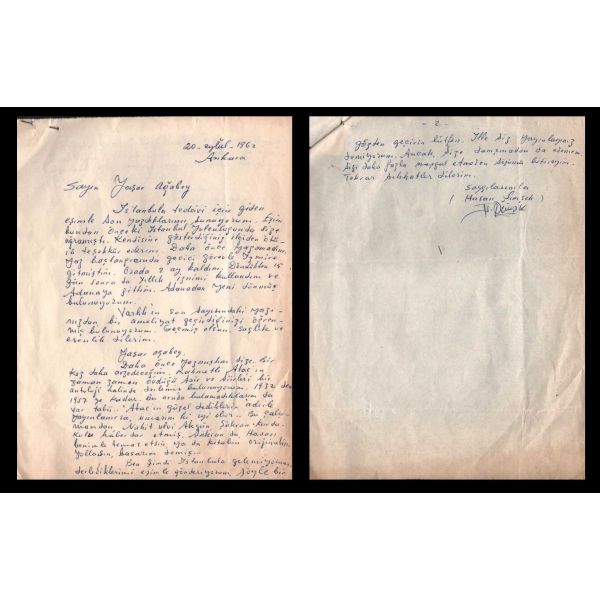 20-eylûl-1962
Ankara
Sayın Yaşar Ağabey
İstanbula tedavi için giden
eşimle son yazdıklarımı sunuyorum. Eşim
bundan önceki İstanbul yolculuğunda size
uğramıştı. Kendisine gösterdiğiniz ilgiden ötü-
rü teşekkür ederim. Daha önce yazamadım,
yaz başlangıcında geçici görevle İzmire
gitmiştim. Orada 2 ay kaldım. Döndükten 15
gün sonra da yıllık iznimi kullandım ve
Adanaya gittim. Adanadan yeni dönmüş
bulunuyorum.
Varlık'ın son sayısındaki yazı-
nızdan bir ameliyat geçirdiğinizi öğren-
miş bulunuyorum. Geçmiş olsun, sağlık ve
esenlik dilerim.
Yaşar ağabey,
Daha önce yazmıştım size. Bir
kez daha arzedeceğim. Rahmetli Ataç'ın
zaman zaman övdüğü şair ve şiirleri bir
antoloji halinde derlemiş bulunuyorum. 1932 den
1957 ye kadar. Bu arada bulamadıklarım da
var tabii. "Ataç'ın güzel dedikleri" adiyle
yayınlanırsa, sanırım ki iyi olur. Bu çalış-
mamdan, Nahit Ulvi Akgün, Şükran Kurda-
kulu haberdar etmiş. Şükran da, Hasan
benimle temas etsin ya da kitabın orijinalini
yollasın, basarım demiş.
Ben şimdi İstanbula gelemiyorum,
derlediklerimi eşimle gönderiyorum, şöyle bir
- 2 -
gözden geçirin lütfen. İlle siz yayınlayınız
demiyorum. Ancak, size danışmadan da edemem.
Sizi daha fazla meşgul etmeden sözümü bitireyim.
Tekrar sıhhatler dilerim.
Saygılarımla
(Hasan Şimşek)